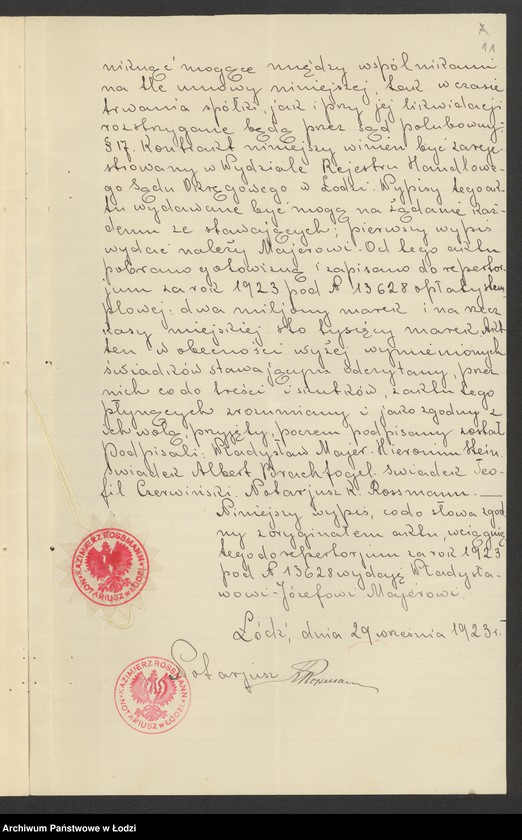 7
11
niknąć mogące między wspólnikami
na tle umowy niniejszej, tak w czasie
trwania spółki, jak i przy jej likwidacji
rozstrzygane będą przez sąd polubowny.
§ 17. Kontrakt niniejszy winien być zareje-
strowany w Wydziale Rejestru Handlowe-
go Sądu Okręgowego w Łodzi. Wypisy tego ak-
tu wydawane być mogą na żądanie każ-
demu ze stawających; pierwszy wypis
wydać należy Majerowi. Od tego aktu
pobrano gotowizną i zapisano do reperto-
rjum za rok 1923 pod № 13628 opłaty stem-
plowej: dwa miljony marek i na rzecz
kasy miejskiej sto tysięcy marek. Akt
ten w obecności wyżej wymienionych
świadków stawającym odczytany, przez
nich co do treści i skutków, z aktu tego
płynących zrozumiany i jako zgodny z
ich wolą, przyjęty, poczem podpisany został
Podpisali: Władysław Majer. Hieronim Stein.
Świadek Albert Brachfogjel. Świadek Teo-
fil Czerwiński. Notarjusz K. Rossmann. —
Niniejszy wypis, co do słowa zgod-
ny z oryginałem aktu, wciągnię-
tego do repertorjum za rok 1923
pod № 13628 wydaję Władysła-
wowi-Józefowi Majerowi.
Łódź, dnia 29 września 1923 r.
Notarjusz KRossmann
KAZIMIERZ ROSSMANN
NOTARIUSZ w ŁODZI
KAZIMIERZ ROSSMANN
NOTARIUSZ w ŁODZI
Archiwum Państwowe w Łodzi